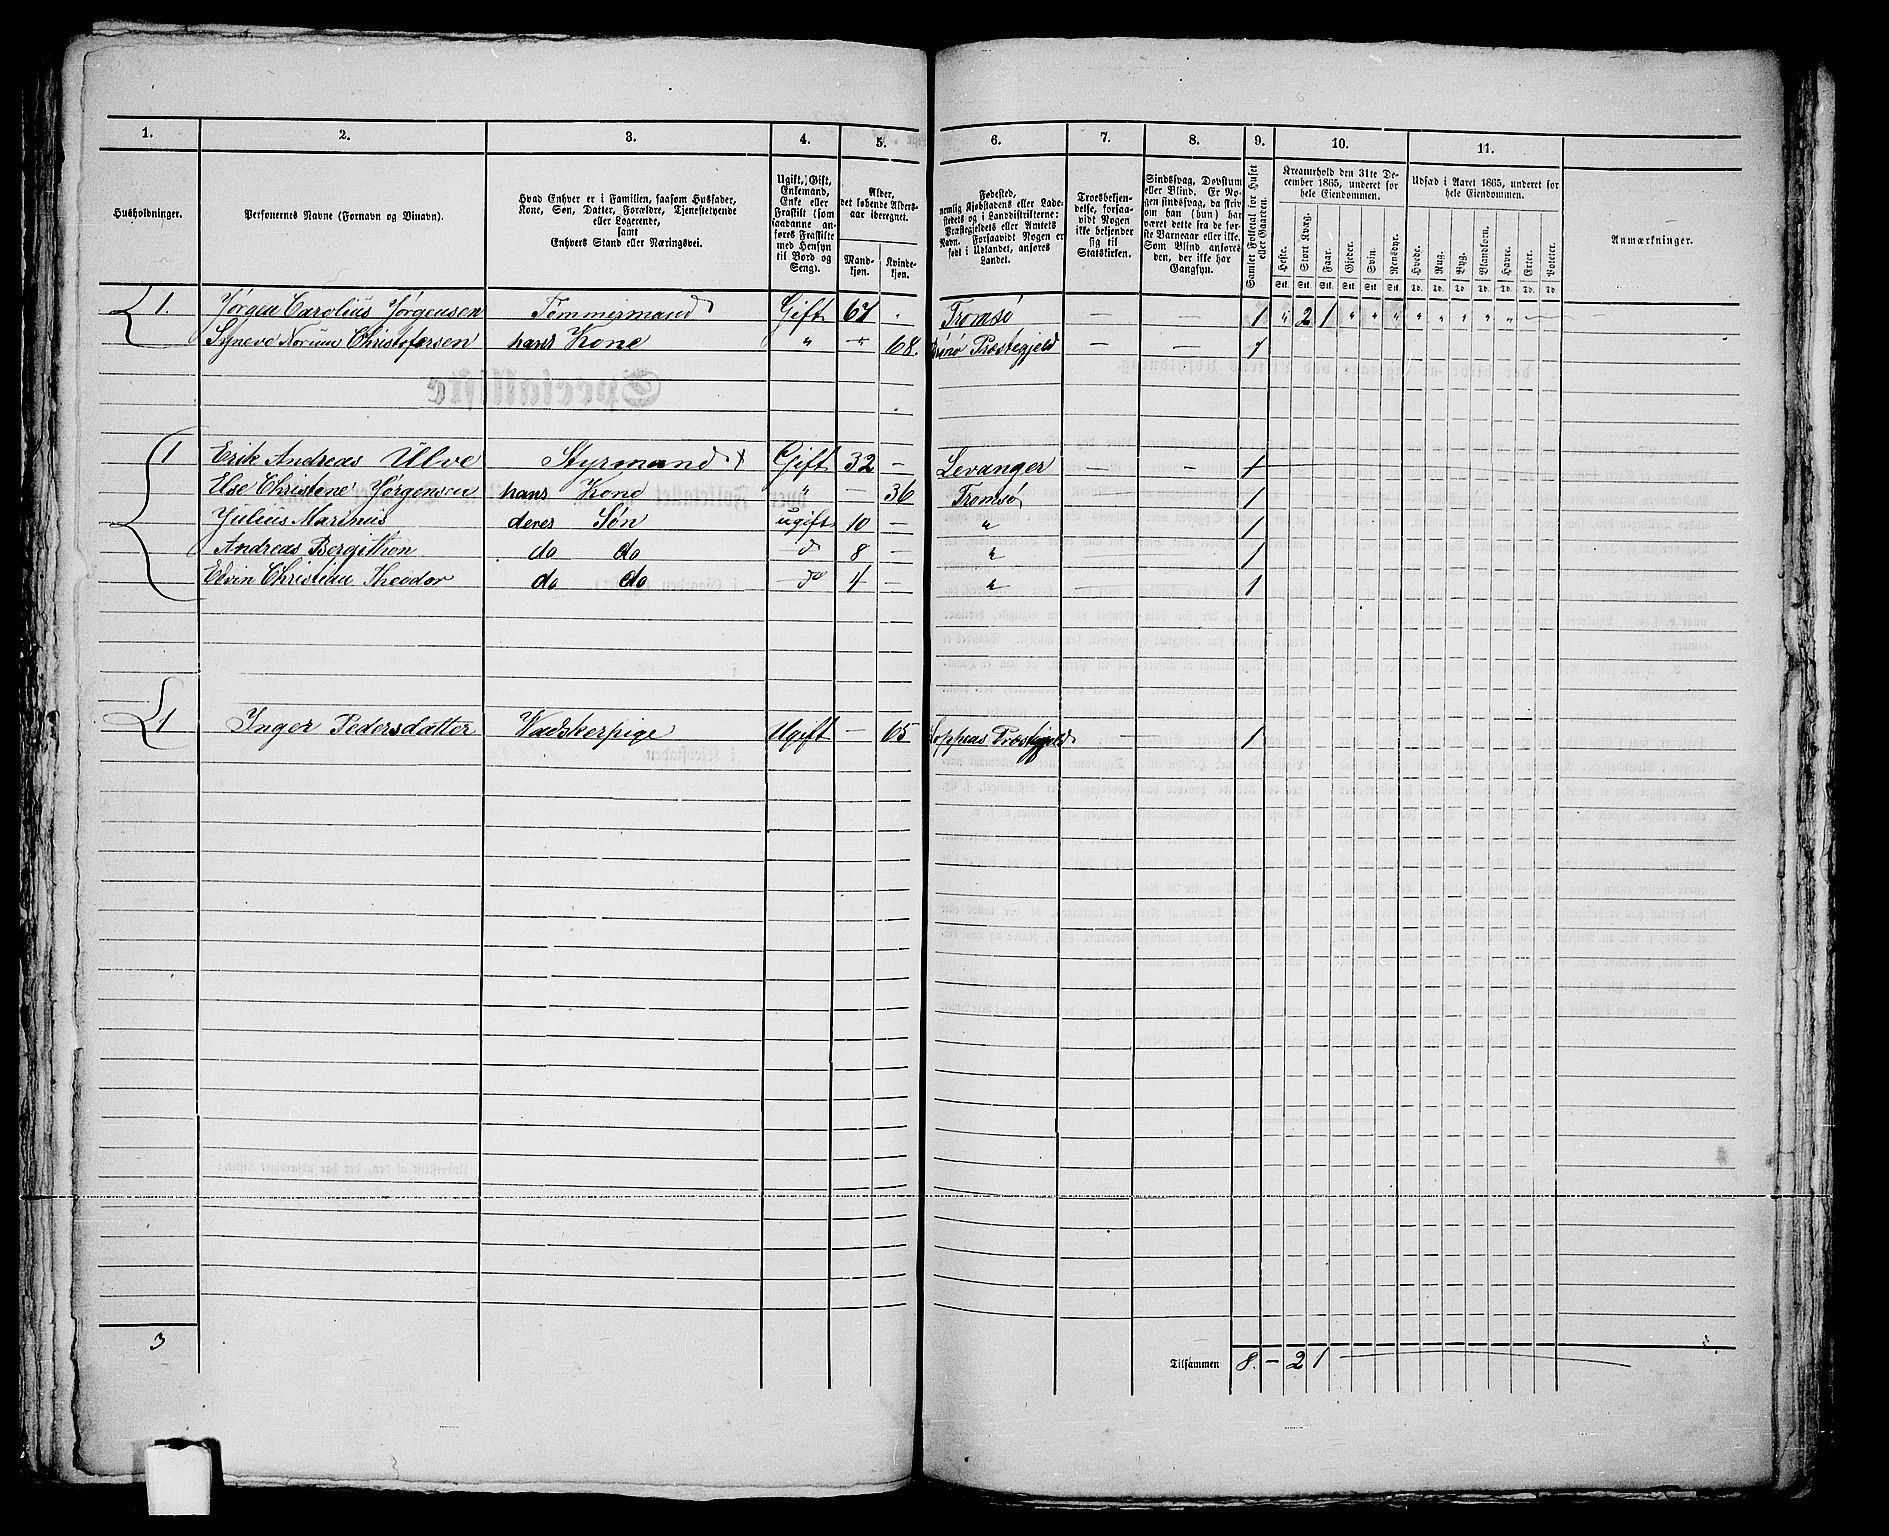 1. 2. 3. 4. 5. 6. 7. 8. 9. 10. 11.
Husholdninger.
Personernes Navne (Fornavn og Tilnavn).
Hvad Enhver er i Familien, saasom Husfader,
Kone, Søn, Datter, Forældre, Tjenestetyende
eller Logerende,
samt
Enhvers Stand eller Næringsvei.
Ugift, Gift,
Enkemand,
Enke eller
Fraskilt (som
saadanne an-
føres Fraskilte
med Hensyn
til Bord og
Seng).
Alder,
det løbende Alders-
aar iberegnet.
Mand-
kjøn.
Kvinde-
kjøn.
Fødested,
nemlig Kjøbstadens eller Lade-
stedets og i Landdistrikterne:
Præstegjeldets eller Amtets
Navn. Forsaavidt Nogen er
født i Udlandet, anføres
Landet.
Troesbekjen-
delse, forsaa-
vidt Nogen
ikke bekjender
sig til
Statskirken.
Sindssvag, Døvstum
eller Blind. Er No-
gen sindssvag, da skriv
om han (hun) har
været dette fra de før-
ste Barneaar eller ikke.
Som Blind anføres
den, der ikke har
Gangsyn.
Samlet Folketal for Huset
eller Gaarden.
Kreaturhold den 31te De-
cember 1865, underet for
hele Eiendommen.
Heste. Stort Kvæg. Faar. Gjeder. Svin. Rensdyr.
Stk. Stk. Stk. Stk. Stk. Stk.
Udsæd i Aaret 1865, underet for
hele Eiendommen.
Hvede. Rug. Byg. Blandkorn. Havre. Erter. Poteter.
Td. Td. Td. Td. Td. Td. Td.
Anmærkninger.
1. Jørgen Carolius Jørgensen Tømmermand Gift 67 - Tromsø — — 1 " 2 1 " " " " " " " " —
Synneve Norum Christofersen hans Kone " — 68. Præstegjeld — — 1
1 Erik Andreas Ulve Styrmand x Gift 32 — Levanger — — 1
Else Christene Jørgensen hans Kone " — 36 Tromsø 1
Julius Marinus deres Søn ugift 10 — " 1
Andreas Bergithon do do do 8 — " 1
Edvin Christian Theodor do do do 4 — " 1
1 Inger Pedersdatter Vadskerpige Ugift — 65 Præstegjeld — 1
3
Tilsammen 8. — 2 1